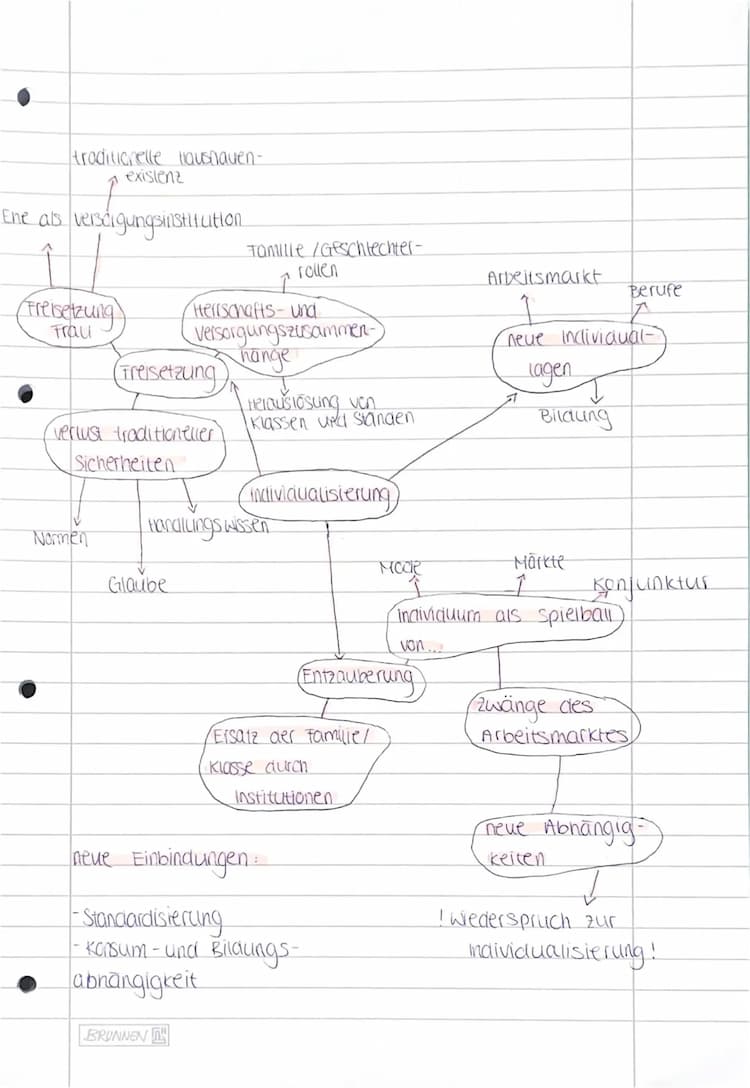 traditionelle Hausfrauen-
existenz
Ehe als Versorgungsinstitution
Familie/Geschlechter-
rollen
Arbeitsmarkt
Berufe
Freisetzung
Frau
Herrschafts- und
Versorgungszusammen-
hänge
neue Individual-
lagen
Freisetzung
Herauslösung von
Klassen und Ständen
Bildung
Verlust traditioneller
Sicherheiten
Individualisierung
Normen
Handlungswissen
Glaube
Mode
Märkte
Konjunktur
Individuum als Spielball
von...
Entzauberung
Zwänge des
Arbeitsmarktes
Ersatz der Familie/
Klasse durch
Institutionen
neue Abhängig-
keiten
neue Einbindungen:
- Standardisierung
- Konsum- und Bildungs-
abhängigkeit
! Wiederspruch zur
Individualisierung!
BRUNNEN